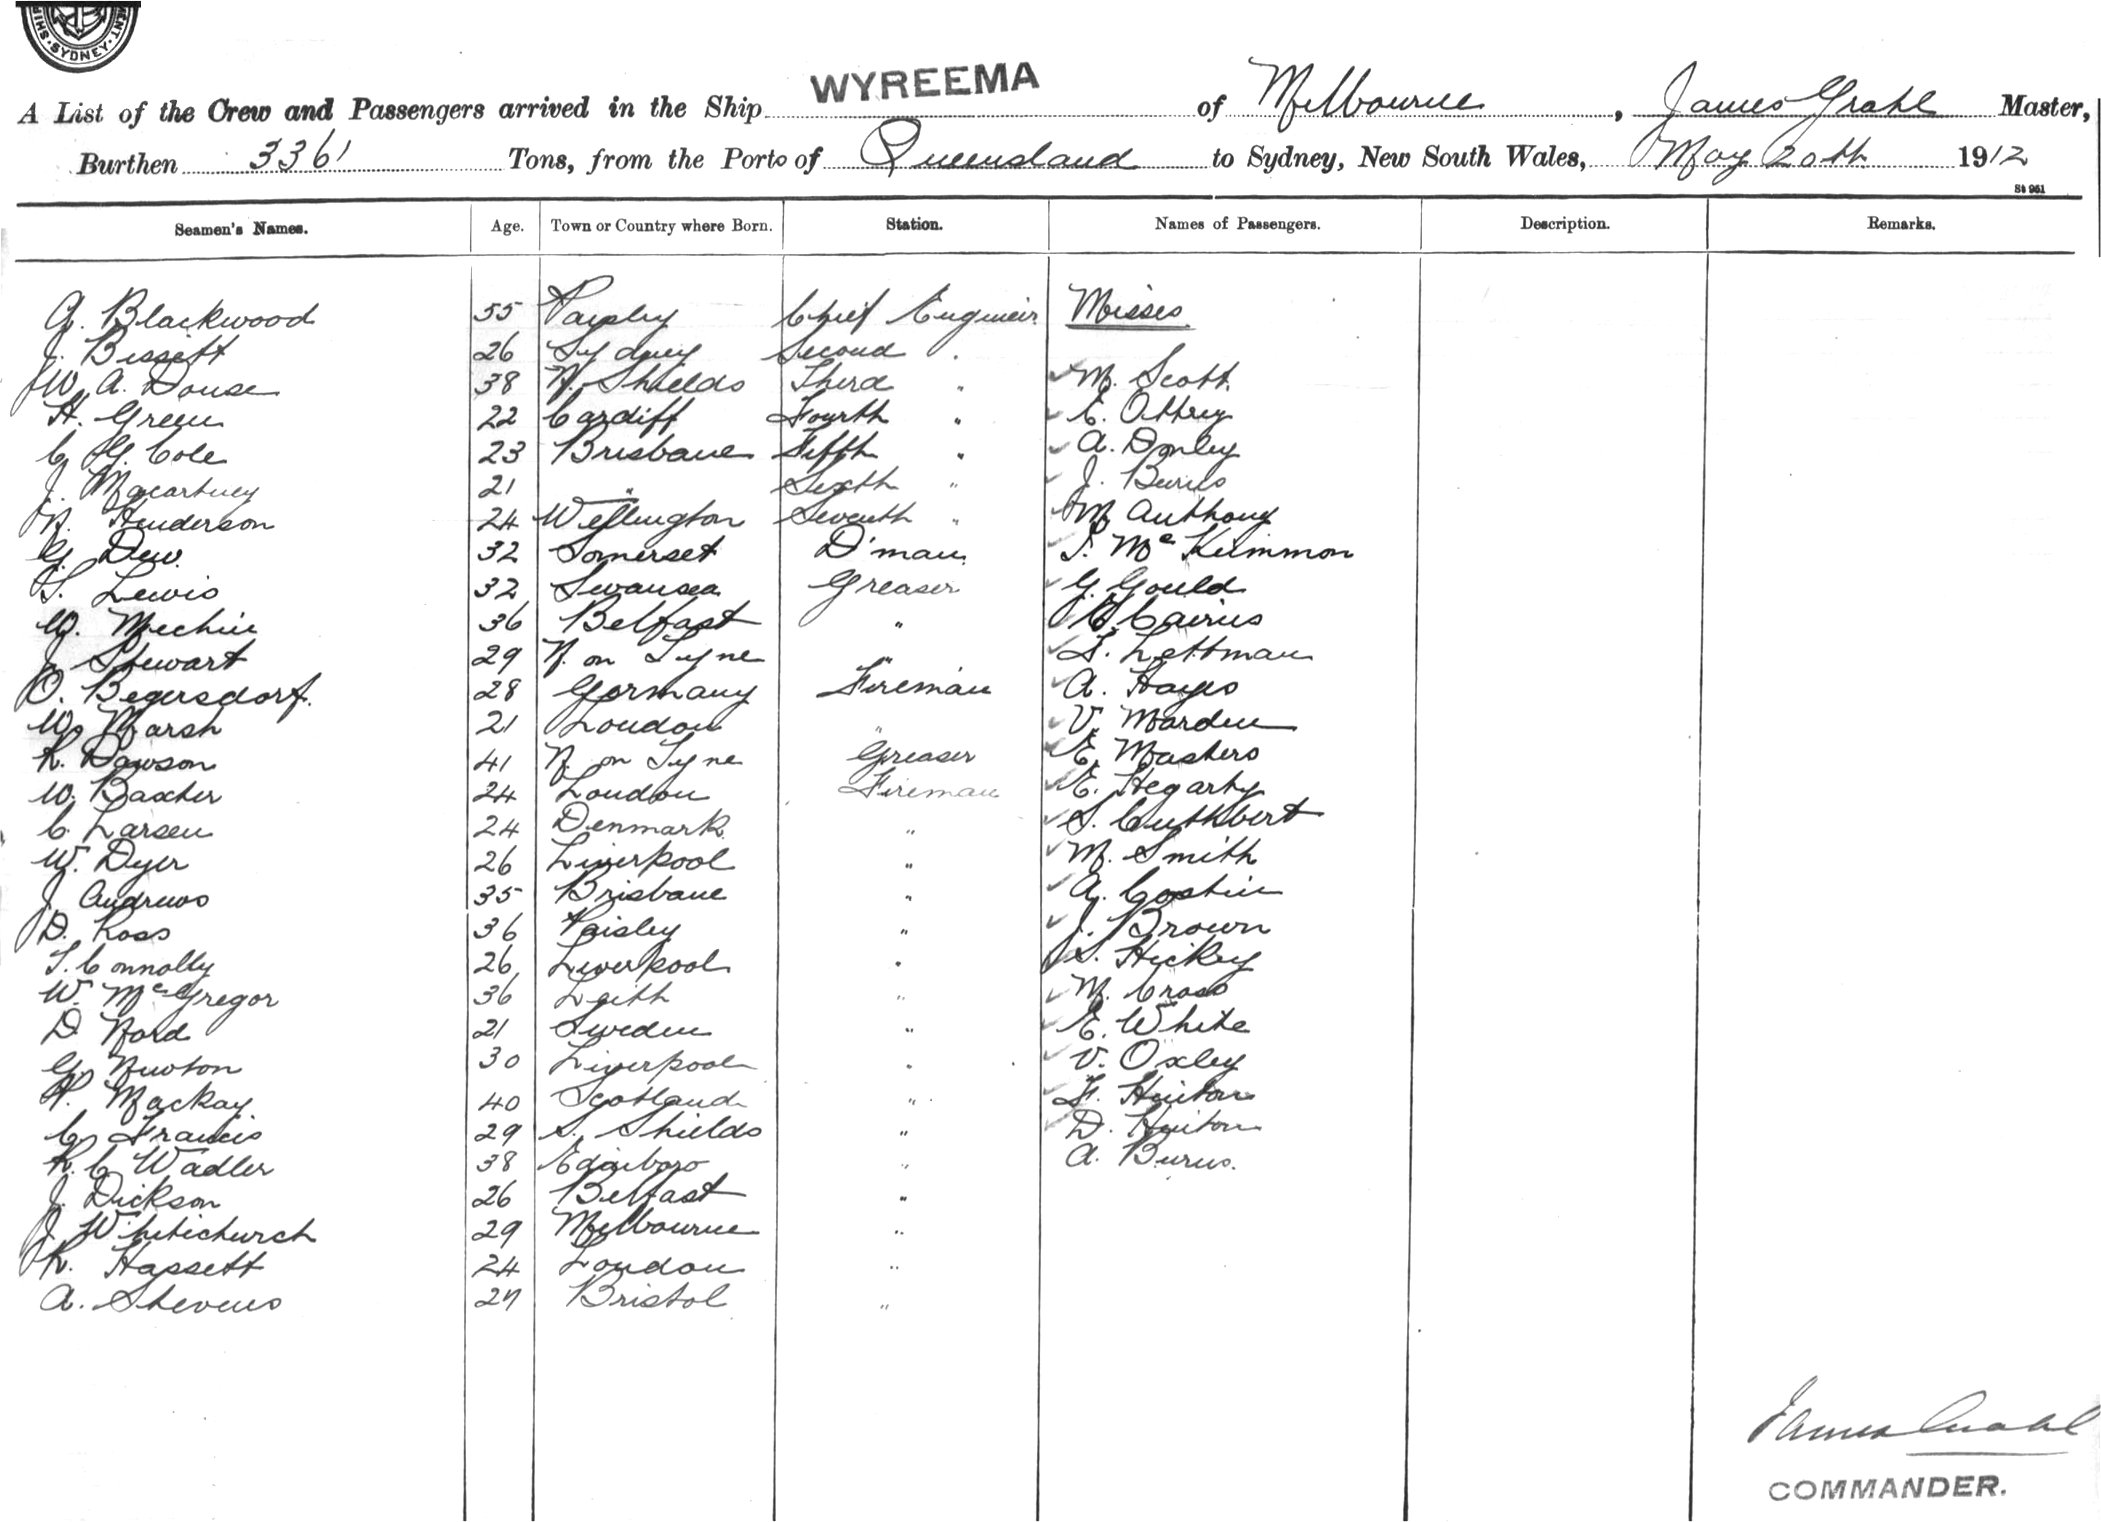 SHIP MENT
SYDNEY
A List of the Crew and Passengers arrived in the Ship WYREEMA of Melbourne, James Grahl Master,
Burthen 3361 Tons, from the Ports of Queensland to Sydney, New South Wales, May 20th 1912
St 961
Seamen's Names. Age. Town or Country where Born. Station. Names of Passengers. Description. Remarks.
A. Blackwood 55 Paisley Chief Engineer Misses
J. Bissett 26 Sydney Second "
W. A. Douse 38 N. Shields Third " M. Scott
H. Green 22 Cardiff Fourth " E. Ottrey
C. G. Cole 23 Brisbane Fifth " A. Donley
J. Macartney 21 " Sixth " J. Burns
N. Henderson 24 Wellington Seventh " M. Anthony
G. Dew 32 Somerset D'man
Mc Kimmon
T. Lewis 32 Swansea Greaser G. Gould
W. Mechin 36 Belfast " Cairns
J. Stewart 29 N. on Tyne " L. Lettman
O. Begersdorf. 28 Germany Fireman A. Hayes
W. Marsh 21 London " V. Marden
R. Dawson 41 N. on Tyne Greaser E. Masters
W. Baxter 24 London Fireman E. Hegarty
C. Larsen 24 Denmark " S. Cuthbert
W. Dyer 26 Liverpool " M. Smith
J. Andrews 35 Brisbane " A. Costin
D. Ross 36 Paisley " J. Brown
T. Connolly 26 Liverpool " S. Hickey
W. McGregor 36 Leith " M. Cross
D. Nord 21 Sweden " E. White
G. Newton 30 Liverpool " V. Oxley
Mackay 40 Scotland " F. Hinton
C. Francis 29 S. Shields " D. Hinton
R. C. Wadler 38 Edinboro " A. Burns.
J. Dickson 26 Belfast "
J. Whitichurch 29 Melbourne "
R. Hassett 24 London "
A. Stevens 27 Bristol "
James Grahl
COMMANDER.